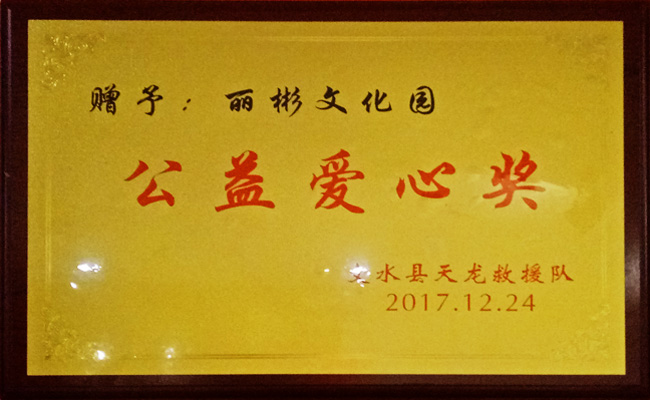 赠予：丽彬文化园
公益爱心奖
文水县天龙救援队
2017.12.24